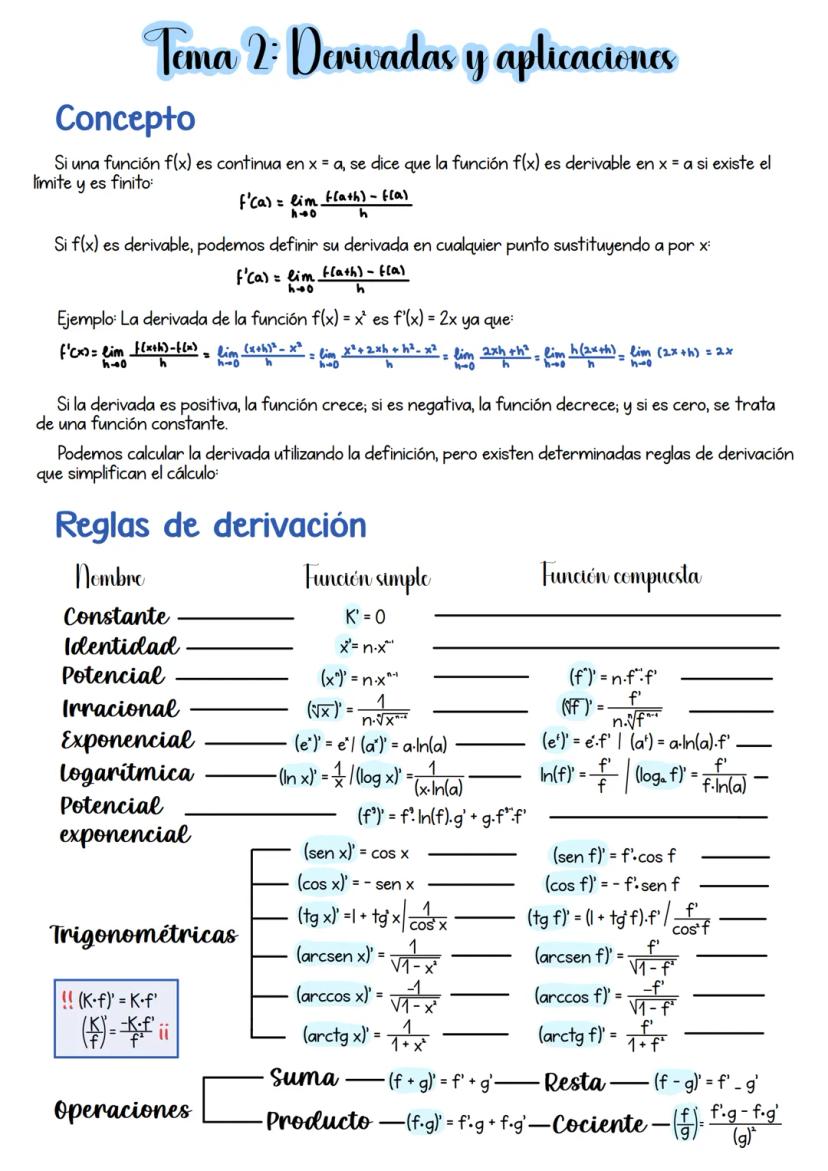 Tema 2: Derivadas y aplicaciones
Concepto
Si una función f(x) es continua en x = a, se dice que la función f(x) es derivable en x = a si existe el
límite y es finito:
f'(a) = lim h→0 f(a+h) - f(a) / h
Si f(x) es derivable, podemos definir su derivada en cualquier punto sustituyendo a por x:
f'(a) = lim h→0 f(a+h) - f(a) / h
Ejemplo: La derivada de la función f(x) = x² es f'(x) = 2x ya que:
f'(x) = lim h→0 f(x+h)-f(x) / h = lim h→0 (x+h)² - x² / h = lim h→0 x² + 2xh + h² - x² / h = lim h→0 2xh + h² / h = lim h→0 h(2x+h) / h = lim h→0 (2x+h) = 2x
Si la derivada es positiva, la función crece; si es negativa, la función decrece; y si es cero, se trata
de una función constante.
Podemos calcular la derivada utilizando la definición, pero existen determinadas reglas de derivación
que simplifican el cálculo:
Reglas de derivación
Nombre Función simple Función compuesta
Constante K' = 0
Identidad = n·xⁿ⁻¹
Potencial (xⁿ)' = n·xⁿ⁻¹ (fⁿ)' = n·fⁿ⁻¹·f'
Irracional (ⁿ√x)' = 1 / n·ⁿ√xⁿ⁻¹ (ⁿ√f)' = f' / n·ⁿ√fⁿ⁻¹
Exponencial (eˣ)' = eˣ | (aˣ)' = a·ln(a) (eᶠ)' = eᶠ·f' | (aᶠ) = a·ln(a).f'
Logarítmica (ln x)' = 1/x / (log x)' = 1 / (x·ln(a) ln(f)' = f'/f / (logₐ f)' = f' / f·ln(a)
Potencial
exponencial
(fᵍ)' = fᵍ·ln(f).g' + g.fᵍ⁻¹·f'
Trigonométricas
(sen x)' = cos x (sen f)' = f'·cos f
(cos x)' = - sen x (cos f)' = - f'·sen f
(tg x)' = 1 + tg²x | 1 / cos²x (tg f)' = (1 + tg²f).f' / f' / cos²f
(arcsen x)' = 1 / √1 - x² (arcsen f)' = f' / √1 - f²
(arccos x)' = -1 / √1 - x² (arccos f)' = -f' / √1 - f²
(arctg x)' = 1 / 1 + x² (arctg f)' = f' / 1 + f²
!! (K·f)' = K·f'
(K/f)' = -K·f' / f² ¡¡
Operaciones
Suma (f + g)' = f' + g' Resta (f - g)' = f' - g'
Producto (f·g)' = f'·g + f·g' Cociente (f/g)' = f'·g - f·g' / (g)²